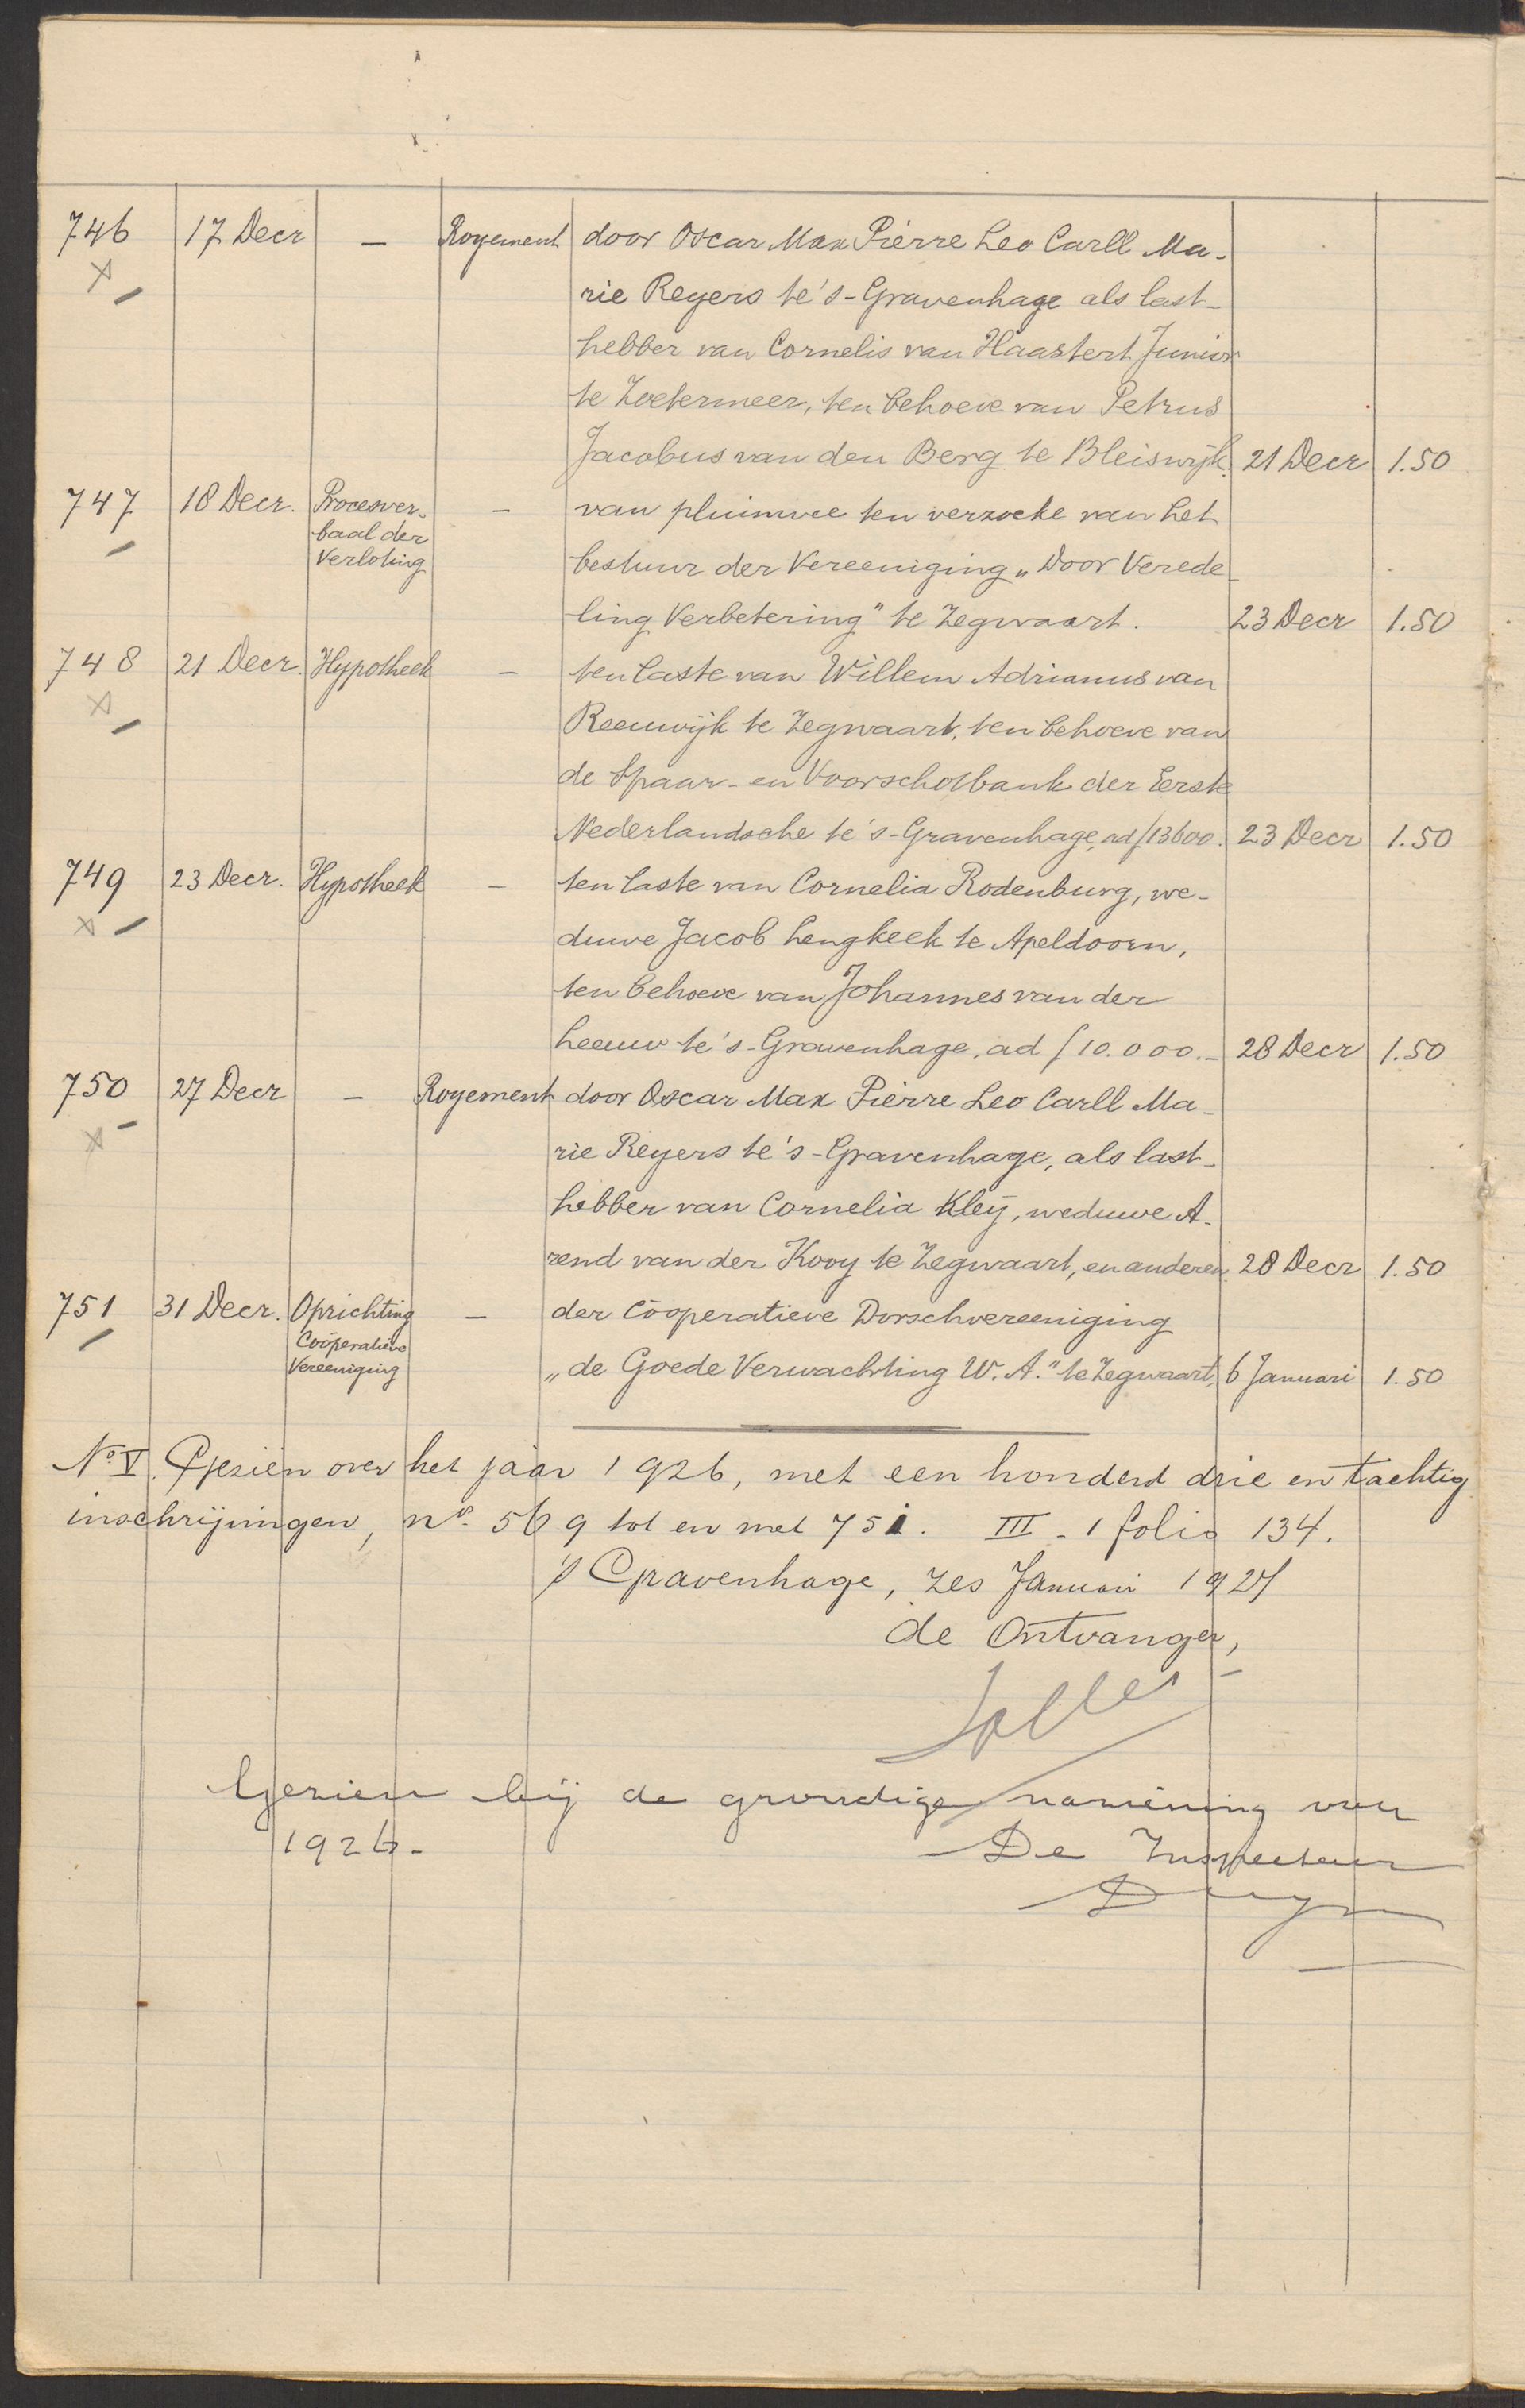 746 17 Decr – Royement door Oscar Max Pierre Leo Carll Ma-
rie Reyers te 's-Gravenhage als last-
hebber van Cornelis van Haastert Junior
te Zoetermeer, ten behoeve van Petrus
Jacobus van den Berg te Bleiswijk. 21 Decr 1.50
747 18 Decr. Procesver- – van pluimvee ten verzoeke van het
baal der
Verloting bestuur der Vereeniging „Door Verede-
ling Verbetering" te Zegwaart. 23 Decr 1.50
748 21 Decr. Hypotheek – ten laste van Willem Adrianus van
Reeuwijk te Zegwaart, ten behoeve van
de Spaar- en Voorschotbank der Eerste
Nederlandsche te 's-Gravenhage, ad f 13600. 23 Decr 1.50
749 23 Decr. Hypotheek – ten laste van Cornelia Rodenburg, we-
duwe Jacob Lengkeek te Apeldoorn,
ten behoeve van Johannes van der
Leeuw te 's-Gravenhage, ad f 10.000.- 28 Decr 1.50
750 27 Decr – Royement door Oscar Max Pierre Leo Carll Ma-
rie Reyers te 's-Gravenhage, als last-
hebber van Cornelia Kleij, weduwe A-
rend van der Kooy te Zegwaart, en anderen 28 Decr 1.50
751 31 Decr. Oprichting – der Coöperatieve Dorschvereeniging
Coöperatieve
Vereeniging „de Goede Verwachting W.A." te Zegwaart, 6 Januari 1.50
No V. Gezien over het jaar 1926, met een honderd drie en tachtig
inschrijvingen, nos. 569 tot en met 751. III - 1 folio 134.
's Gravenhage, zes Januari 1927
de Ontvanger,
Gezien bij de grondige naziening over
1926.
De Inspecteur